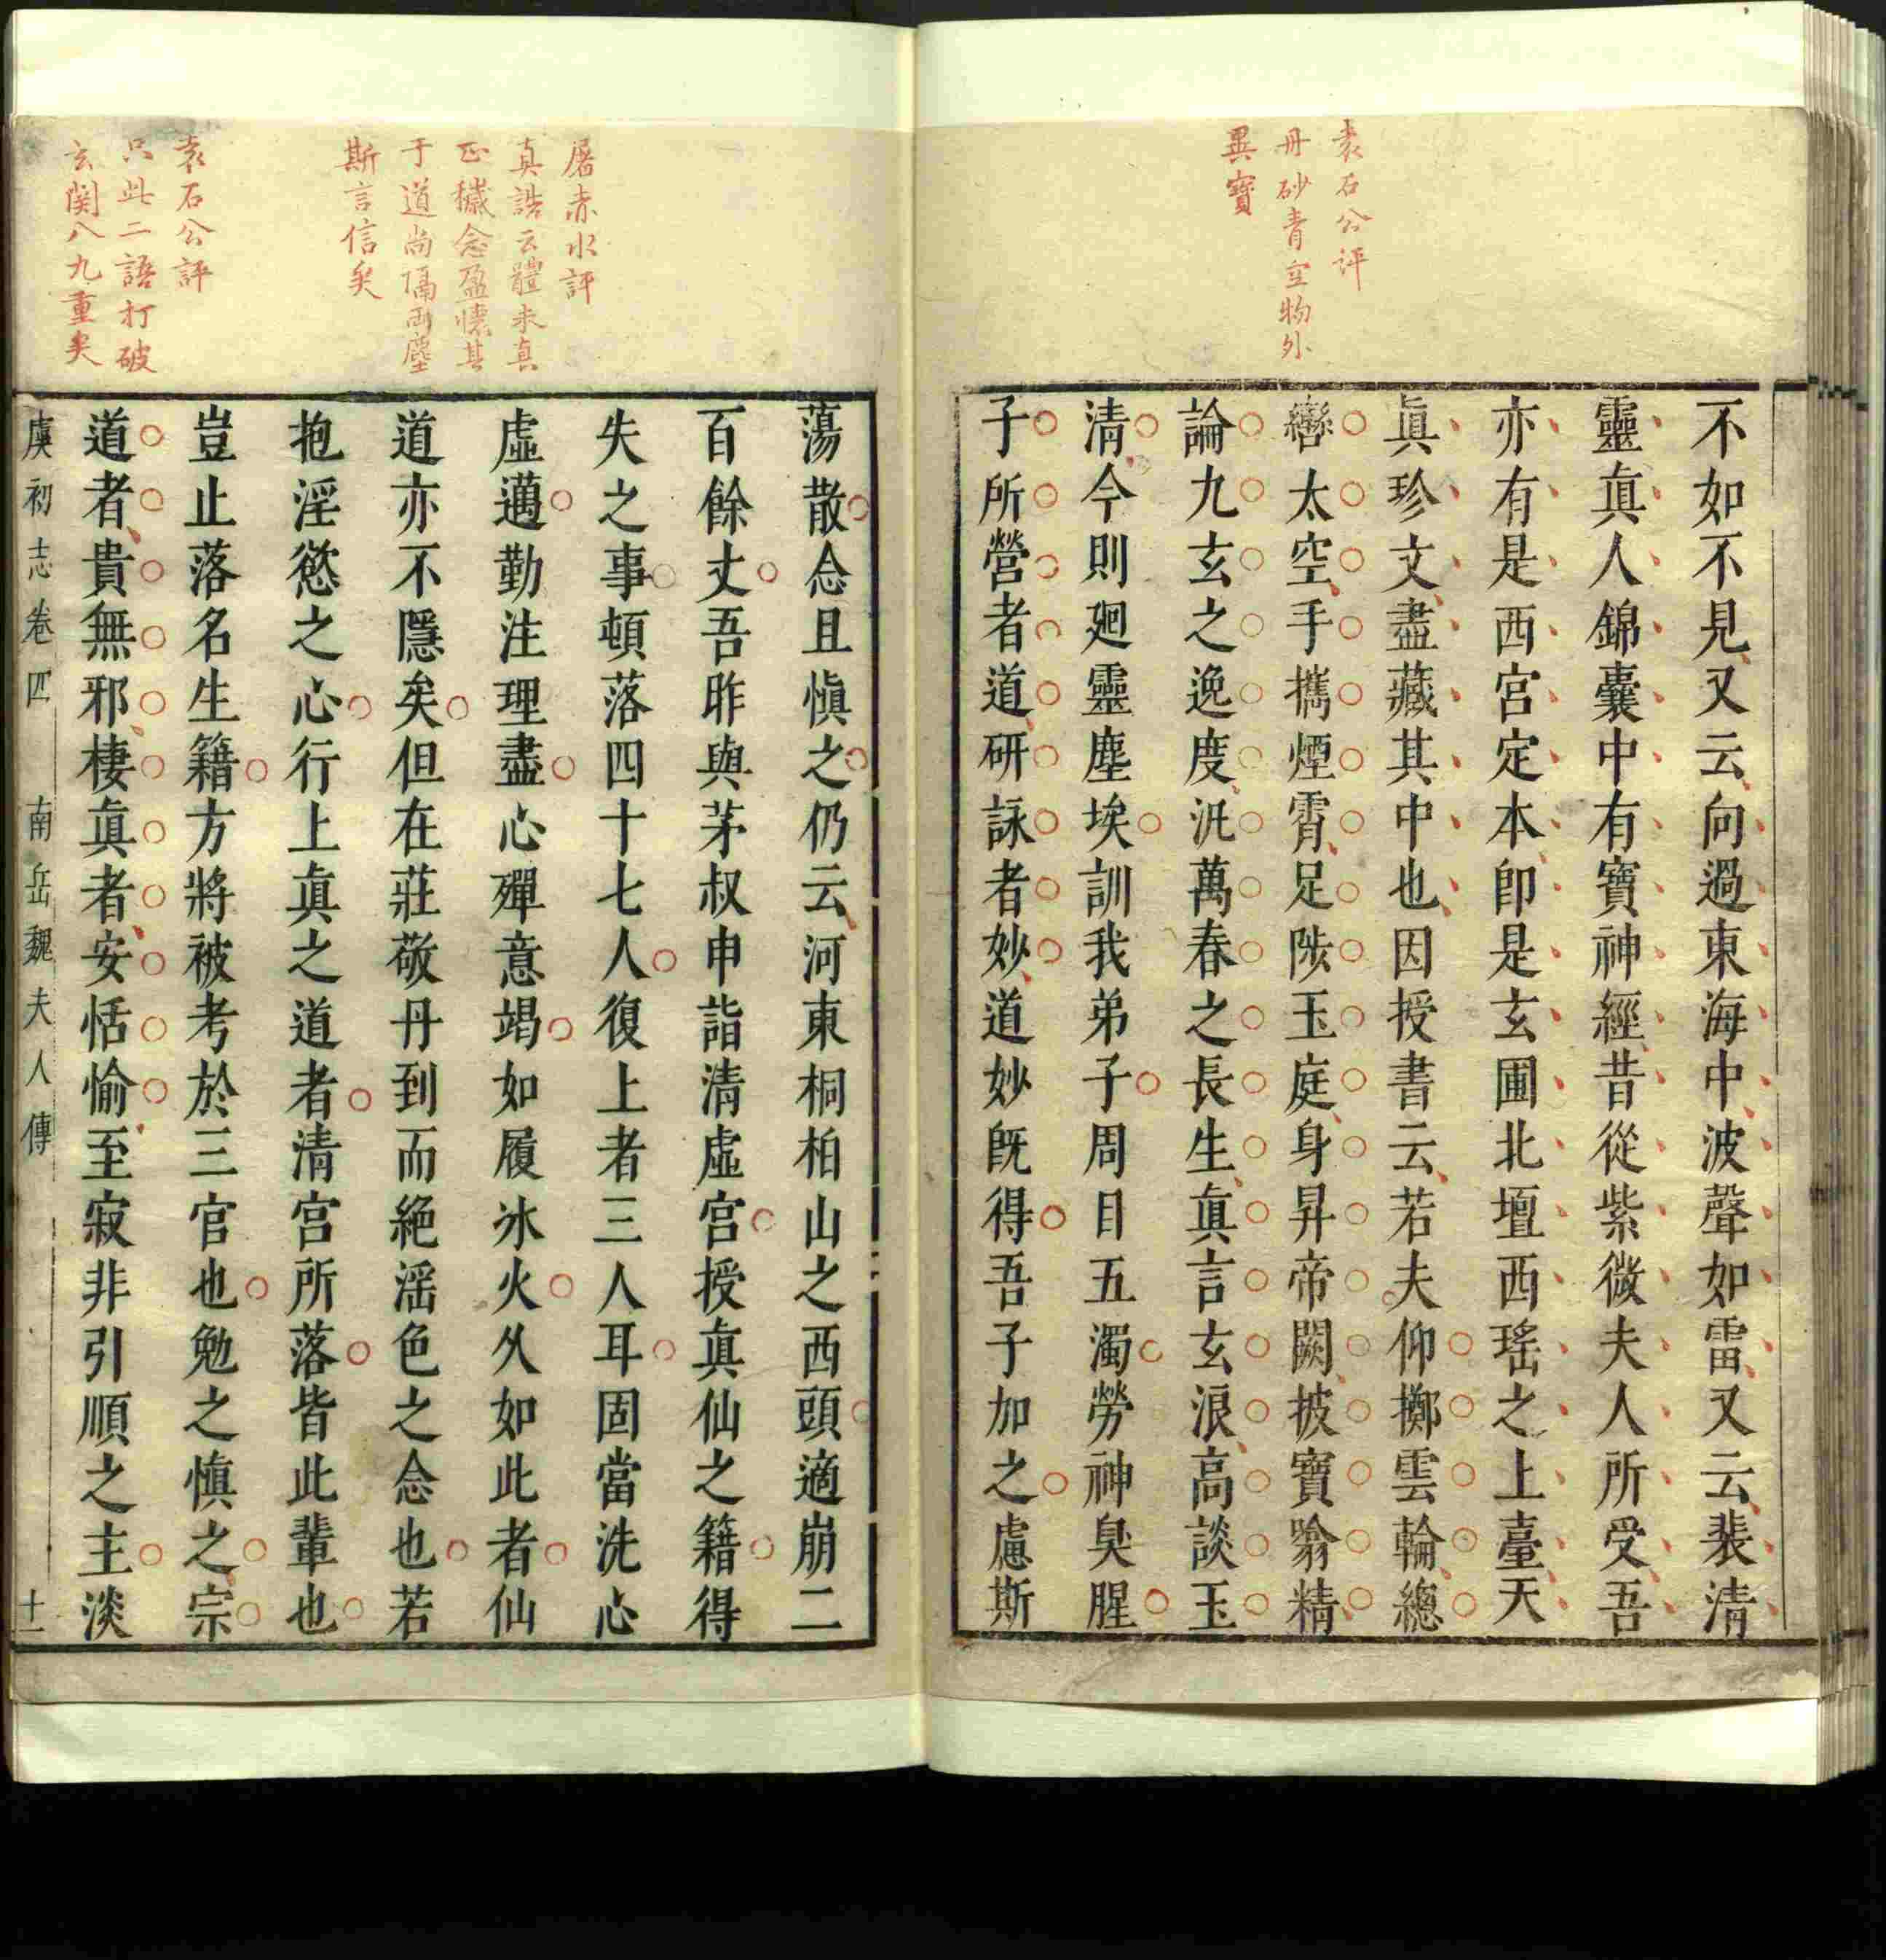 袁石公評
丹砂青空物外
異寶
不如不見又云向過東海中波聲如雷又云裴清
靈真人錦囊中有寶神經昔從紫微夫人所受吾
亦有是西宮定本即是玄圃北壇西瑤之上臺天
眞珍文盡藏其中也因授書云若夫仰擲雲輪總
轡太空手攜煙霄足陟玉庭身昇帝闕披寶歙精
論九玄之逸度沉萬春之長生眞言玄浪高談玉
清今則廻靈塵埃訓我弟子周目五濁勞神臭腥
子所營者道研詠者妙道妙既得吾子加之慮斯
屠赤水評
真誥云體未真
正穢念盈懷其
于道尚隔兩塵
斯言信矣
袁石公評
只此二語打破
玄関八九重矣
蕩散念且愼之仍云河東桐柏山之西頭適崩二
百餘丈吾昨與茅叔申詣清虛宮授眞仙之籍得
失之事頓落四十七人復上者三人耳固當洗心
虛邁勤注理盡心殫意竭如履氷火久如此者仙
道亦不隱矣但在莊敬丹到而絕滛色之念也若
抱淫慾之心行上眞之道者清宮所落皆此輩也
豈止落名生籍方將被考於三官也勉之愼之宗
道者貴無邪棲眞者安恬愉至寂非引順之主淡
虞初志卷四 南岳魏夫人傳 十一